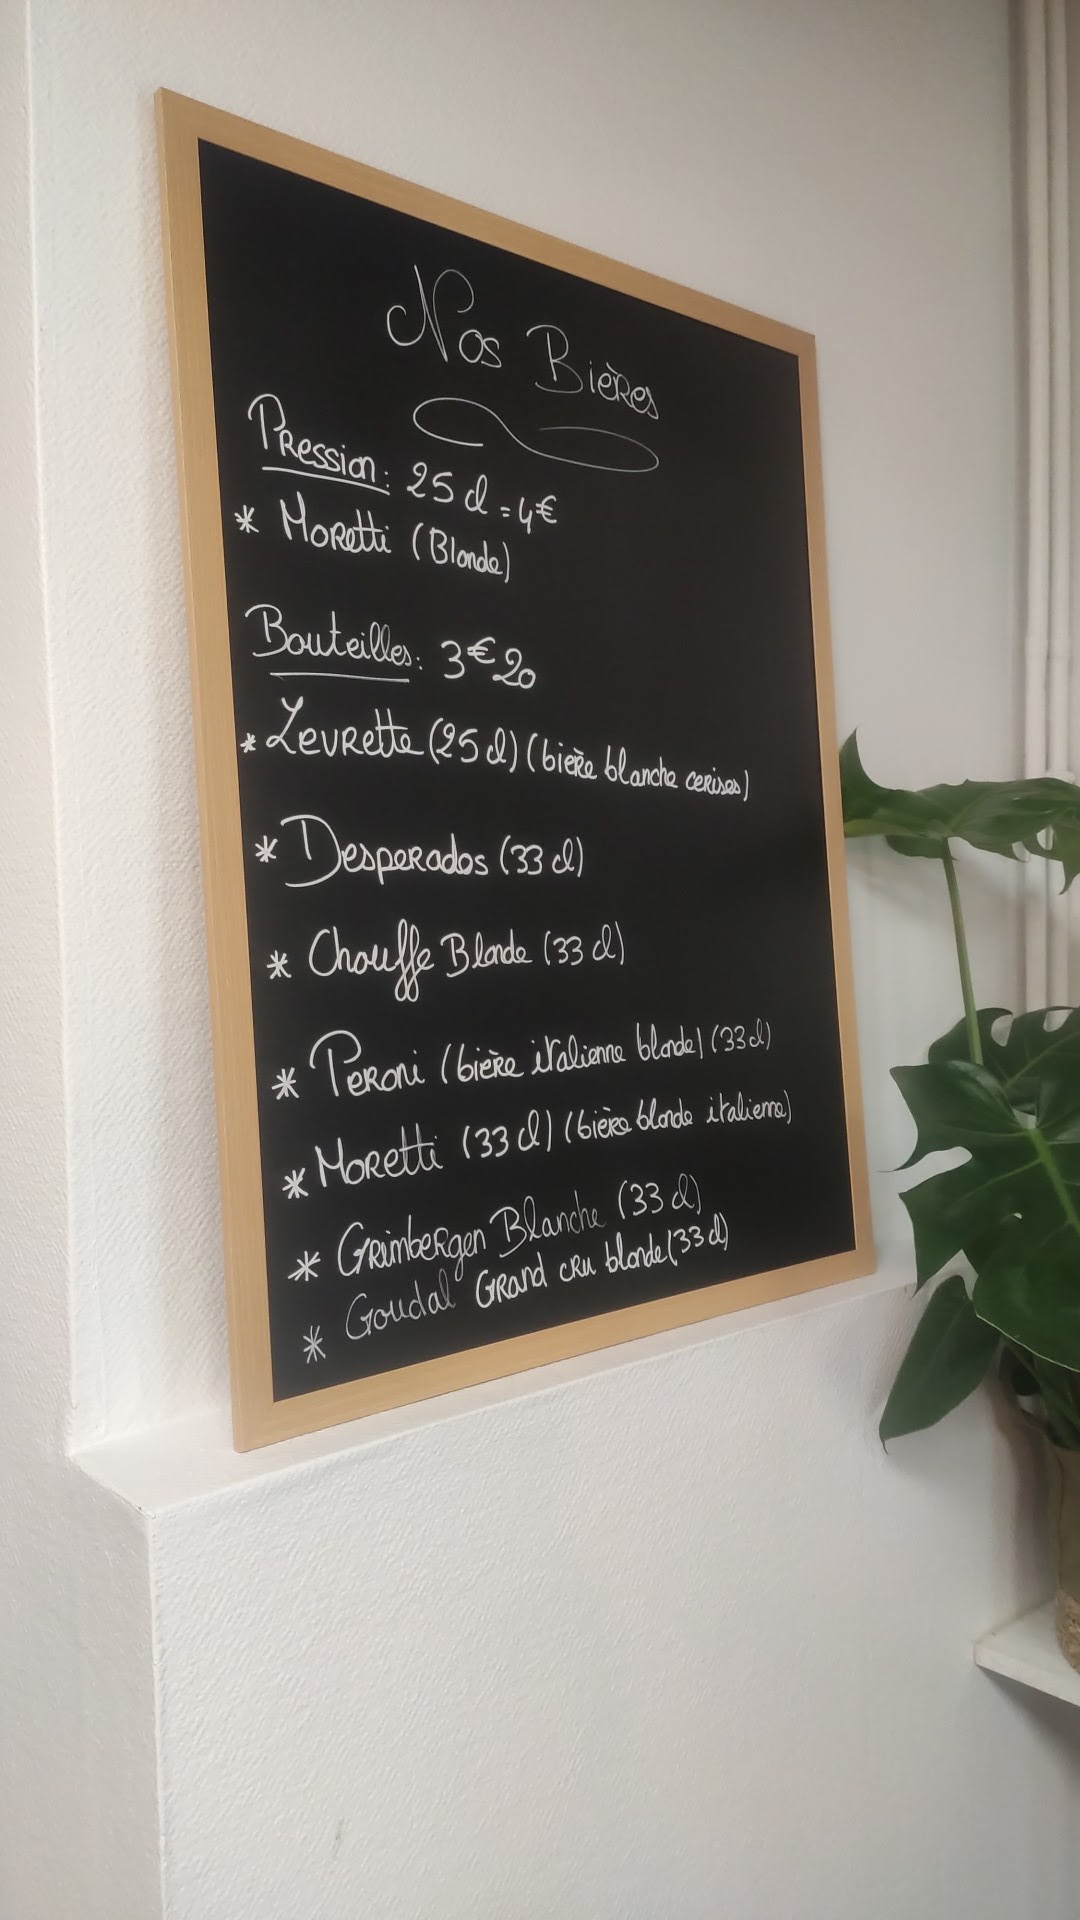 Nos Bières
Pression: 25 cl = 4€
* Moretti (Blonde)
Bouteilles: 3€20
* Levrette (25 cl) (bière blanche cerises)
* Desperados (33 cl)
* Chouffe Blonde (33 cl)
* Peroni (bière italienne blonde) (33 cl)
* Moretti (33 cl) (bière blonde italienne)
* Grimbergen Blanche (33 cl)
* Goudal Grand cru blonde (33 cl)